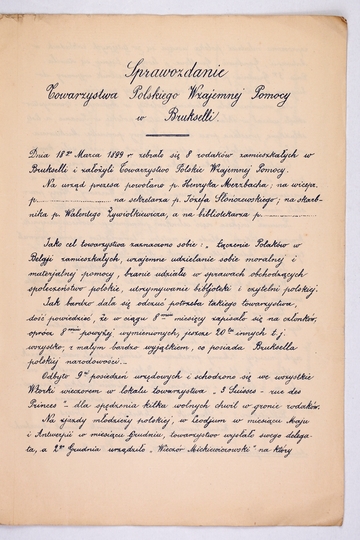 Sprawozdanie
Towarzystwa Polskiego Wzajemnej Pomocy
w Brukselli.
Dnia 18go Marca 1899 r zebrało się 8 rodaków zamieszkałych w
Brukselli i założyli Towarzystwo Polskie Wzajemnej Pomocy.
Na urząd prezesa powołano p. Henryka Merzbacha; na wicepr.
p. .................... na sekretarza p. Józefa Słonczewskiego; na skarb-
nika p. Walentego Żywiołkiewicza, a na bibliotekarza p. ............
Jako cel towarzystwa zaznaczono sobie: „Łączenie Polaków w
Belgji zamieszkałych, wzajemne udzielanie sobie moralnej i
materjalnej pomocy, branie udziału w sprawach obchodzących
społeczeństwo polskie, utrzymywanie biblioteki i czytelni polskiej.
Jak bardzo dała się odczuć potrzeba takiego towarzystwa,
dość powiedzieć, że w ciągu 8miu miesięcy zapisało się na członków,
oprócz 8miu powyżej wymienionych, jeszcze 20tu innych t. j.
wszystko, z małym bardzo wyjątkiem, co posiada Bruksella
polskiej narodowości.—
Odbyto 9ć posiedzeń urzędowych i schodzono się we wszystkie
Wtorki wieczorem w lokalu towarzystwa „3 Suisses - rue des
Princes" - dla spędzenia kilku wolnych chwil w gronie rodaków.
Na zjazdy młodzieży polskiej, w Leodjum w miesiącu Maju
i Antwerpii w miesiącu Grudniu, towarzystwo wysłało swego delega-
ta, a 2go Grudnia urządziło „Wieczór Mickiewiczowski" na który